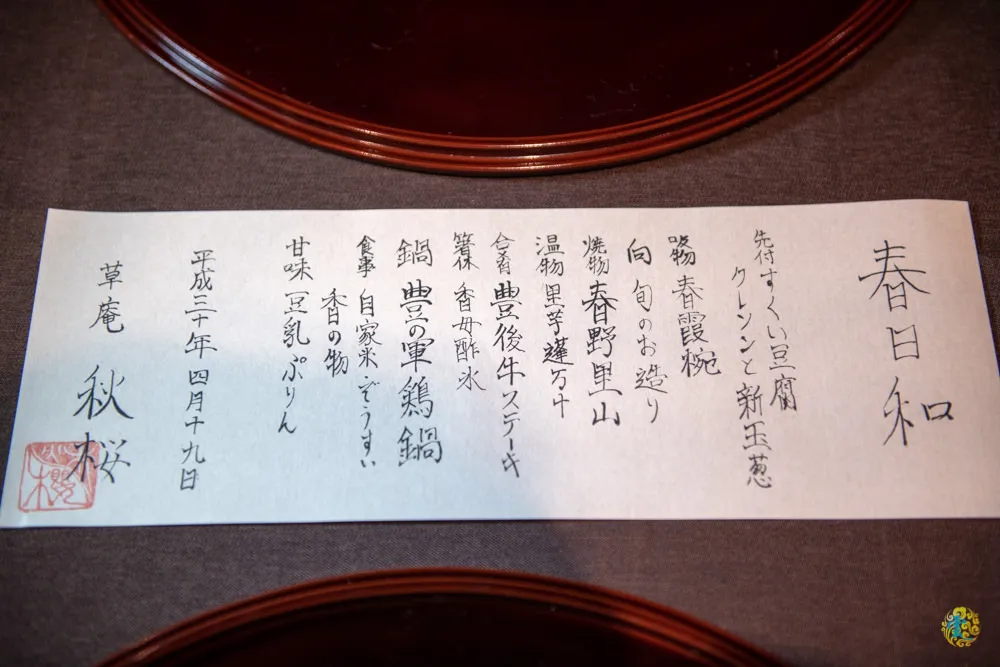 春日和
先付 すくい豆腐
クレソンと新玉葱
吸物 春霞椀
向 旬のお造り
焼物 春野里山
温物 里芋蓮万十
合肴 豊後牛ステーキ
箸休 香母酢氷
鍋 豊の軍鶏鍋
食事 自家米ぞうすい
香の物
甘味 豆乳ぷりん
平成三十年四月十九日
草庵 秋桜